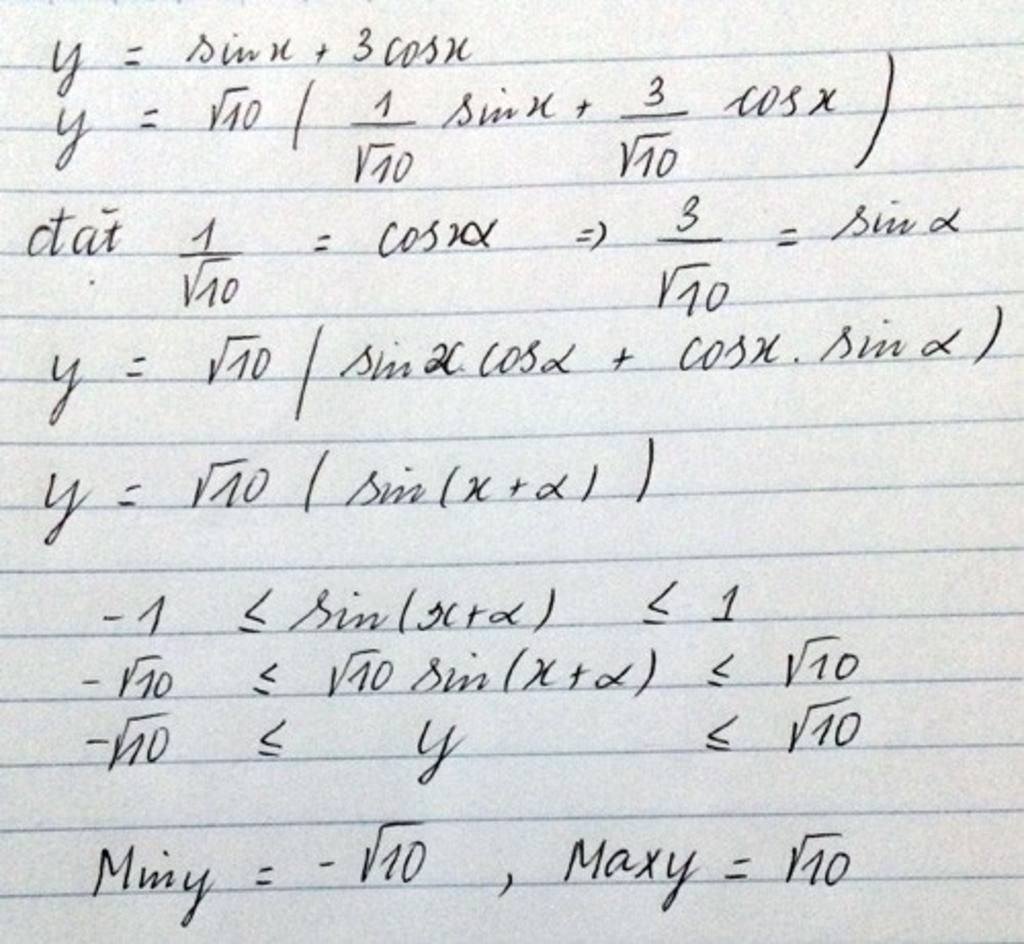 y = sinx + 3cosx
y = √10 ( 1/√10 sinx + 3/√10 cosx )
đặt 1/√10 = cosα => 3/√10 = sinα
y = √10 ( sinx.cosα + cosx.sinα )
y = √10 ( sin(x+α) )
-1 ≤ sin(x+α) ≤ 1
-√10 ≤ √10 sin(x+α) ≤ √10
-√10 ≤ y ≤ √10
Miny = -√10 , Maxy = √10